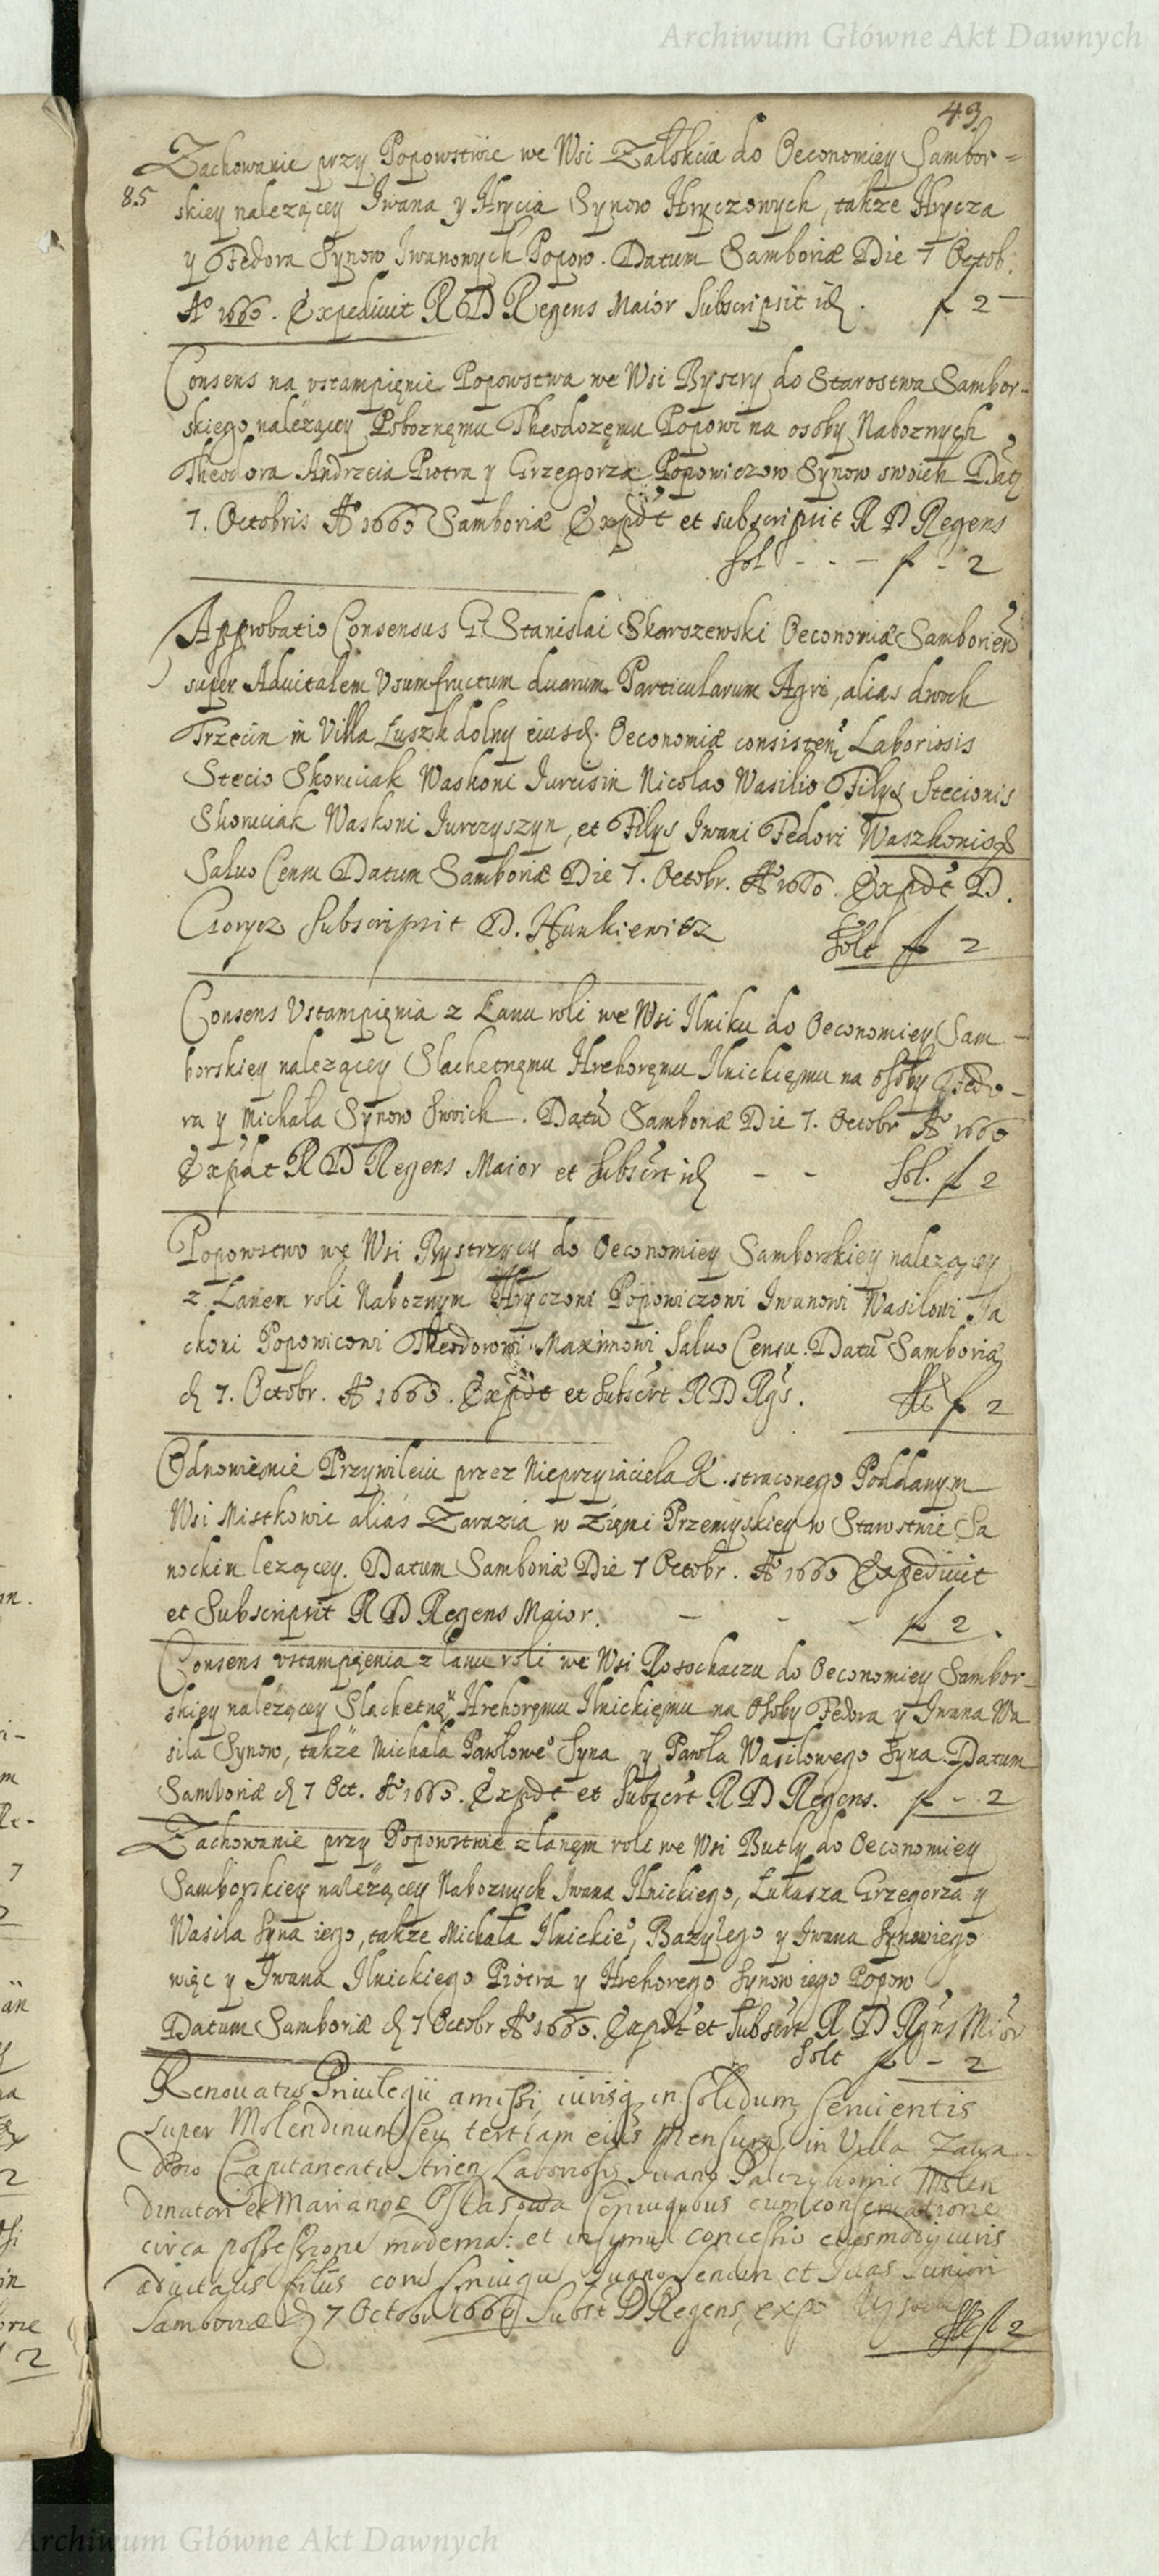 Archiwum Główne Akt Dawnych
43.
Zachowanie przy Popowstwie we Wsi Załokcia do Oeconomiey Sambor=
85 skiey nalezącey Iwana y Hrycia Synow Hryczowych, takze Hrycza
y Fedora Synow Iwanowych Popow. Datum Samboriæ Die 7 Octob.
Aº 1660. Expediuit R D Regens Maior Subscripsit id. f 2 —
Consens na vstampięnie Popowstwa we Wsi Bystry do Starostwa Sambor-
skiego nalezącey Pobożnęmu Theodozęmu Popowi na osoby Naboznych
Theodora Andrzeia Piotra y Grzegorza Popowiczow Synow swoich Dat
7. Octobris Aº 1660 Samboriæ Expdt et subscripsit R D Regens
Sol - - — f - 2
Approbatio Consensus G. Stanislai Skarszewski Oeconomiæ Samborien
super Aduitalem Vsumfructum duarum Particularum Agri, alias dwoch
Trzecin in Villa Łuszk dolny eiusd. Oeconomiæ consisten Laboriosis
Stecio Skoruiak Waskoni Iurcisin Nicolao Wasilio Filys Stecionis
Skoruiak Waskoni Iurczyszyn, et Filys Iwani Fedori Waszkonis
Saluo Censu Datum Samboriæ Die 7. Octobr. Aº 1660. Expdt D.
Subscripsit D. Hankiewicz Solt f 2
Consens Vstampięnia z Łanu roli we Wsi Ilniku do Oeconomiey Sam-
borskiey nalezącey Slachetnęmu Hrehoręmu Ilnickięmu na osoby Fedo-
ra y Michała Synow Swoich. Datũ Samboriæ Die 7. Octobr Aº 1660
Expdt R D Regens Maior et Subscrt id - - Sol. f 2
Popowstwo we Wsi Bystrzycy do Oeconomiey Samborskiey nalezącey
z Łanem roli Naboznym Hryczowi Popowiczowi Iwanowi Wasilowi Ja
ckoni Popowicowi Theodorowi Maximowi Saluo Censu. Datũ Samboriæ
d 7. Octobr. Aº 1660. Expdt et Subscrt R D Rgs. f 2
Odnowienie Przywileiu przez Nieprzyiaciela K. straconego Poddanym
Wsi Mistkowic alias Zarazia w Zięmi Przemyskiey w Starostwie Sa
nockim lezącey. Datum Samboriæ Die 7 Octobr. Aº 1660 Expediuit
et Subscripsit R D Regens Maior. - - - f 2.
Consens vstampięnia z łanu roli we Wsi Rosochaczu do Oeconomiey Sambor-
skiey nalezącey Slachetnęu Hrehoręmu Ilnickięmu na Osoby Fedora y Iwana Wa
sila Synow, takze Michała Pawłoweº Syna y Pawła Wasilowego Syna. Datum
Samboriæ d 7 Oct. Aº 1660. Expdt et Subscrt R D Regens. f - 2
Zachowanie przy Popowstwie z łanęm roli we Wsi Butly do Oeconomiey
Samborskiey nalezącey Naboznych Iwana Ilnickiego, Łukasza Grzegorza y
Wasila Syna iego, takze Michała Ilnickieº, Bazylego y Iwana Synow iego
więc y Iwana Ilnickiego Piotra y Hrehorego Synow iego Popow
Datum Samboriæ d 7 Octobr Aº 1660. Expdt et Subscrt R D Rgns Mior
Solt f - 2
Renouatio Priuilegii amissi iurisq in solidum seruientis
super Molendinum seu tertiam eius Mensurã in Villa Zawa
Capitaneatu Strien Laboriosis Iuano Molen
dinatori et Mariannæ Coniugibus cum conseruatione
circa possessione moderna: et insimul concessio eiusmody iuris
aduitalis filiis Iuano Seniori et Iuas Iuniori
Samboriæ d 7 Octobr 1660 Subst D Regens exp f 2
Archiwum Główne Akt Dawnych